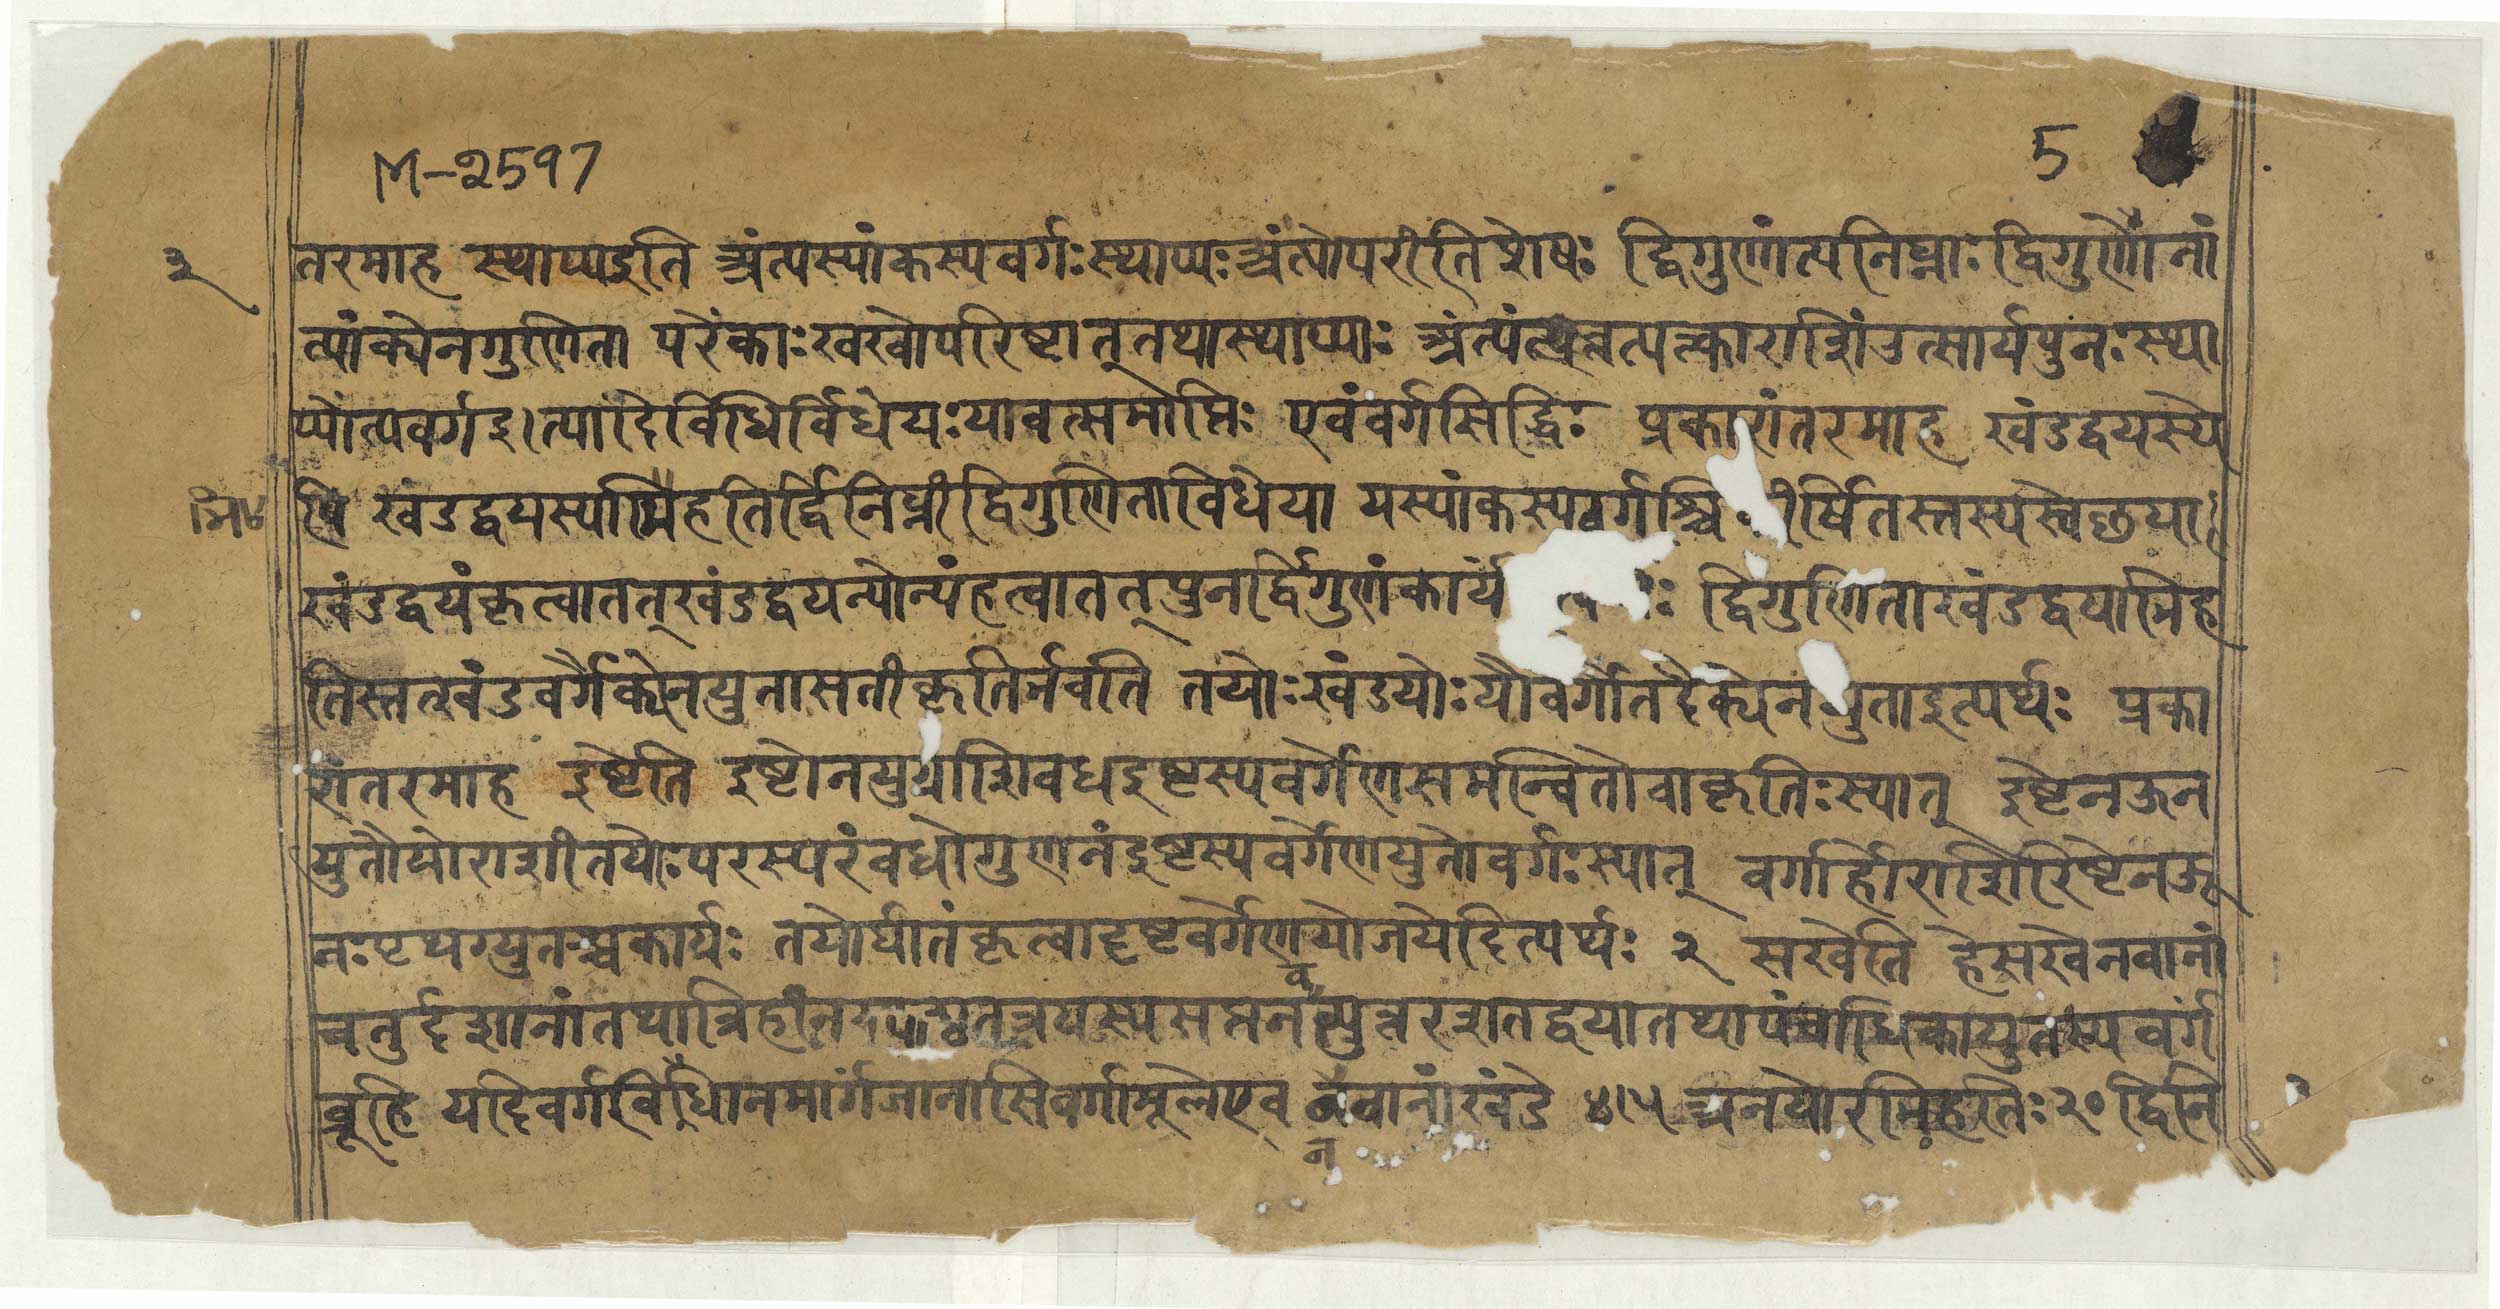 M-2597
5
२
तरमाह स्थाप्यइति अंत्यस्यांकस्यवर्गः स्थाप्यः अंत्योपरीति शेषः द्विगुणांत्यनिघ्नाः द्विगुणेनां
त्यांक्येनगुणिता परेंकाः स्वस्वोपरिष्टात् तथास्थाप्याः अंत्यं राशिंउत्सार्यपुनः स्था
प्योंत्यवर्गइ।त्यादिविधिर्विधेयः यावत्समाप्तिः एवंवर्गसिद्धिः प्रकारांतरमाह खंडद्वयस्ये
ति खंडद्वयस्याभिहतिर्द्विनिघ्नीद्विगुणिताविधेया यस्यांकस्यवर्गश्चि र्षितस्तस्यस्वेछया
खंडद्वयंकृत्वातत्खंडद्वयन्योन्यंहत्वातत्पुनर्द्विगुणंकार्यं द्विगुणिताखंडद्वयाभिह
तिस्तत्खंडवर्गैक्येनयुतासतीकृतिर्भवति तयोः खंडयोः यौवर्गौतदैक्येनयुताइत्यर्थः प्रका
रांतरमाह इष्टेति इष्टोनयुग्राशिवधइष्टस्यवर्गेणसमन्वितोवाकृतिः स्यात् इष्टेनऊन
युतौयोराशीतयोः परस्परंवधोगुणनंइष्टस्यवर्गेणयुतोवर्गः स्यात् वर्गार्होराशिरिष्टेनऊ
नः पृथग्युतश्चकार्यः तयोर्घातंकृत्वादृष्टवर्गेणयोजयेदित्यर्थः २ सखेति हेसखेनवानां
चतुर्दशानांतथात्रिहीन शतत्रयस्य तथापंचाधिकायुतस्यवर्गं
ब्रूहि यदिवर्गविधानमार्गंजानासिवर्गामूलेएव नवानांखंडे ४।५ अनयोरभिहतिः २० द्विनि
न